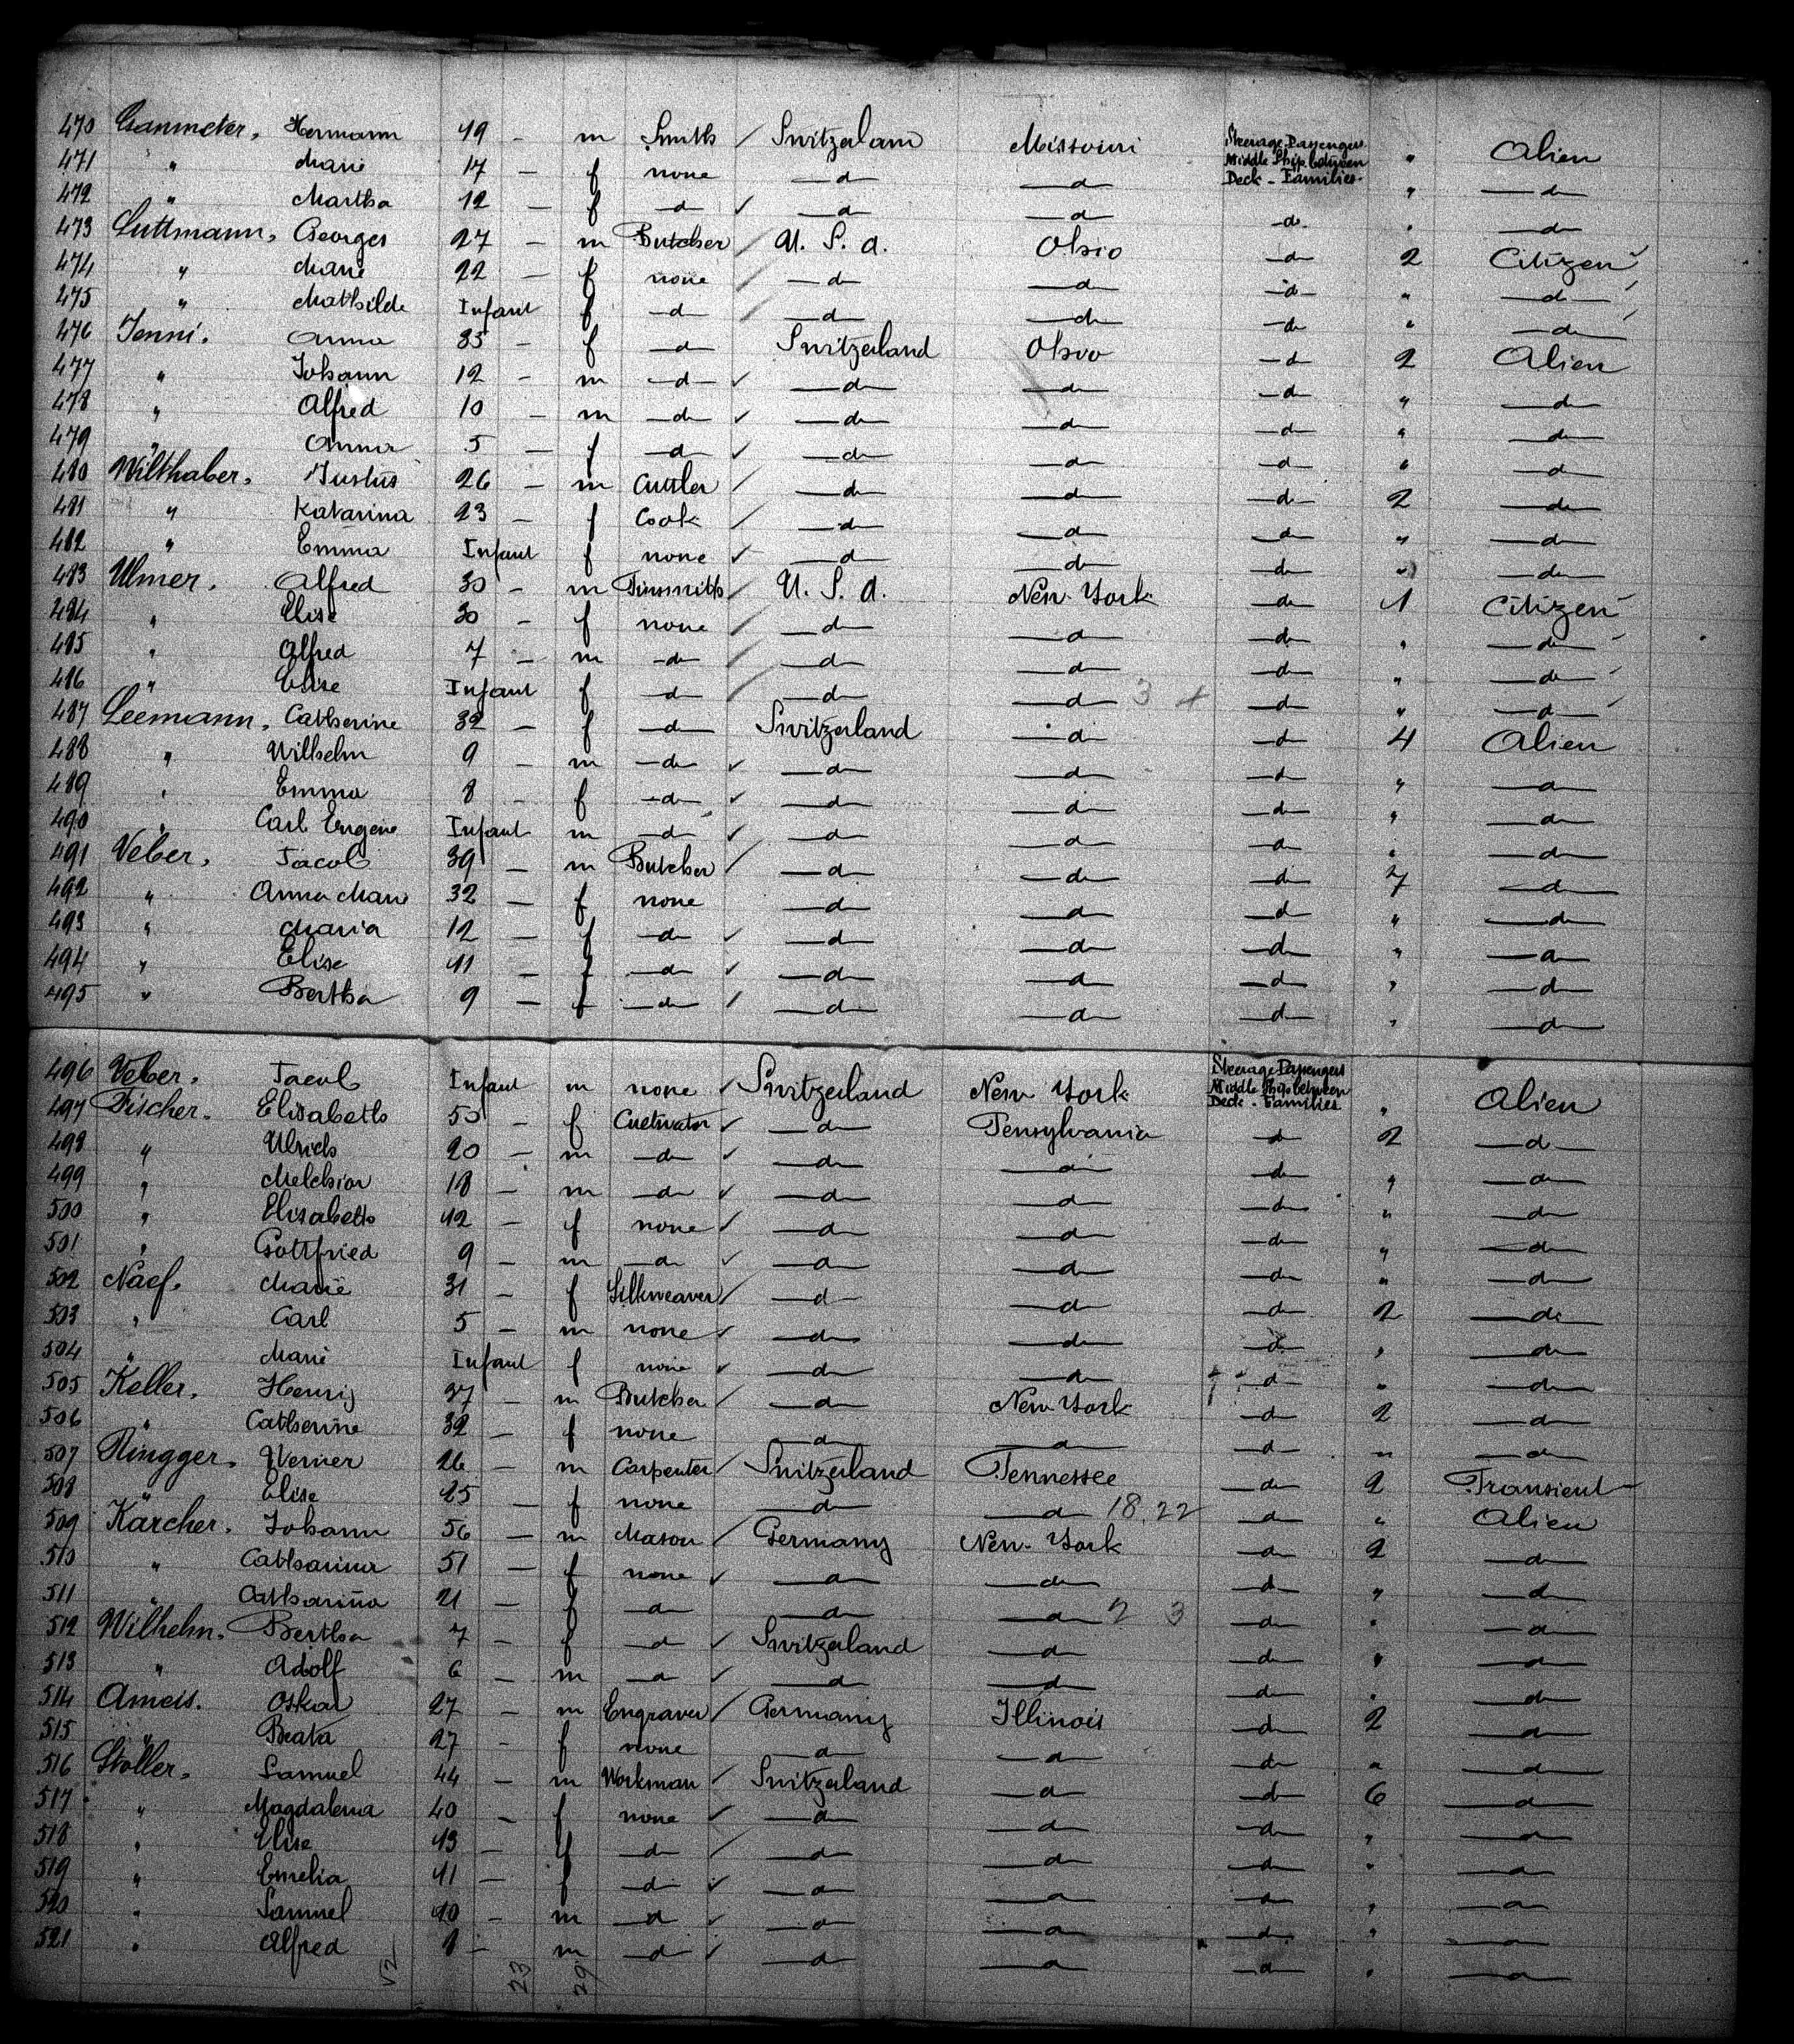 470 Hermann 19 - m Smith / Switzerlam Missouri Steerage Passengers Middle Ship between Deck - Families - " Alien
471 " Marie 17 - f none — d — d " — d
472 " Martha 12 - f — d ✓ — d — d — d " — d
473 Luttmann, Georges 27 - m Butcher / U. S. A. Ohio — d 2 Citizen
474 " Marie 22 - f none / — d — d — d " — d
475 " Mathilde Infant f — d / — d — d — d " — d
476 Jenni. Anna 35 - f — d Switzerland Ohio — d 2 Alien
477 " Johann 12 - m — d ✓ — d — d — d " — d
478 " Alfred 10 - m — d ✓ — d — d — d " — d
479 " Anna 5 - f — d ✓ — d — d — d " — d
480 Wilthaber. Justus 26 - m Cuttler / — d — d — d 2 — d
481 " Katarina 23 - f Cook / — d — d — d " — d
482 " Emma Infant f none ✓ — d — d — d " — d
483 Ulmer. Alfred 30 - m Tinsmith / U. S. A. New-York — d 1 Citizen
484 " Elise 30 - f none / — d — d — d " — d
485 " Alfred 7 - m — d / — d — d — d " — d
486 " Elise Infant f — d / — d — d 3 — d " — d
487 Leemann. Catherine 32 - f — d Switzerland — d — d 4 Alien
488 " Wilhelm 9 - m — d ✓ — d — d — d " — d
489 " Emma 8 - f — d ✓ — d — d — d " — d
490 " Carl Eugene Infant m — d ✓ — d — d — d " — d
491 Veber. Jacob 39 - m Butcher / — d — d — d 7 — d
492 " Anna Marie 32 - f none — d — d — d " — d
493 " Maria 12 - f — d ✓ — d — d — d " — d
494 " Elise 11 - f — d ✓ — d — d — d " — d
495 " Bertha 9 - f — d / — d — d — d " — d
496 Veber. Jacob Infant m none ✓ Switzerland New York Steerage Passengers Middle Ship between Deck - Families " Alien
497 Fischer. Elisabeth f Cultivator ✓ — d Pensylvania — d 2 — d
498 " Ulrich 20 - m — d ✓ — d — d — d " — d
499 " Melchior 18 - m — d ✓ — d — d — d " — d
500 " Elisabeth 12 - f none ✓ — d — d — d " — d
501 " Gottfried 9 - m — d ✓ — d — d — d " — d
502 Naef. Marie 31 - f Silkweaver / — d — d — d 2 — d
503 " Carl 5 - m none ✓ — d — d — d " — d
504 " Marie Infant f none ✓ — d — d — d " — d
505 Keller. Henrij - m Butcher / — d New York — d 2 — d
506 " Catherine 32 - f none — d — d — d " — d
507 Ringger. Werner 26 - m Carpenter / Switzerland Tennessee — d 2 Transient
508 " Elise 25 - f none — d — d 18.22 — d " Alien
509 Kärcher. Johann 56 - m Mason / Germany New-York — d 2 — d
510 " Catharina 51 - f none ✓ — d — d — d " — d
511 " Catharina 21 - f — d — d — d 2 3 — d " — d
512 Wilhelm. Bertha 7 - f — d ✓ Switzerland — d — d " — d
513 " Adolf 6 - m — d ✓ — d — d — d " — d
514 Ameis. Oskar 27 - m Engraver / Germany Illinois — d 2 — d
515 " Beata 27 - f none — d — d — d " — d
516 Stoller. Samuel 44 - m Workman / Switzerland — d — d 6 — d
517 " Magdalena 40 - f none ✓ — d — d — d " — d
518 " Elise 13 - f — d / — d — d — d " — d
519 " Emelia 11 - f — d ✓ — d — d — d " — d
520 " Samuel 10 - m — d ✓ — d — d — d " — d
521 " Alfred 8 - m — d ✓ — d — d — d " — d
23 29